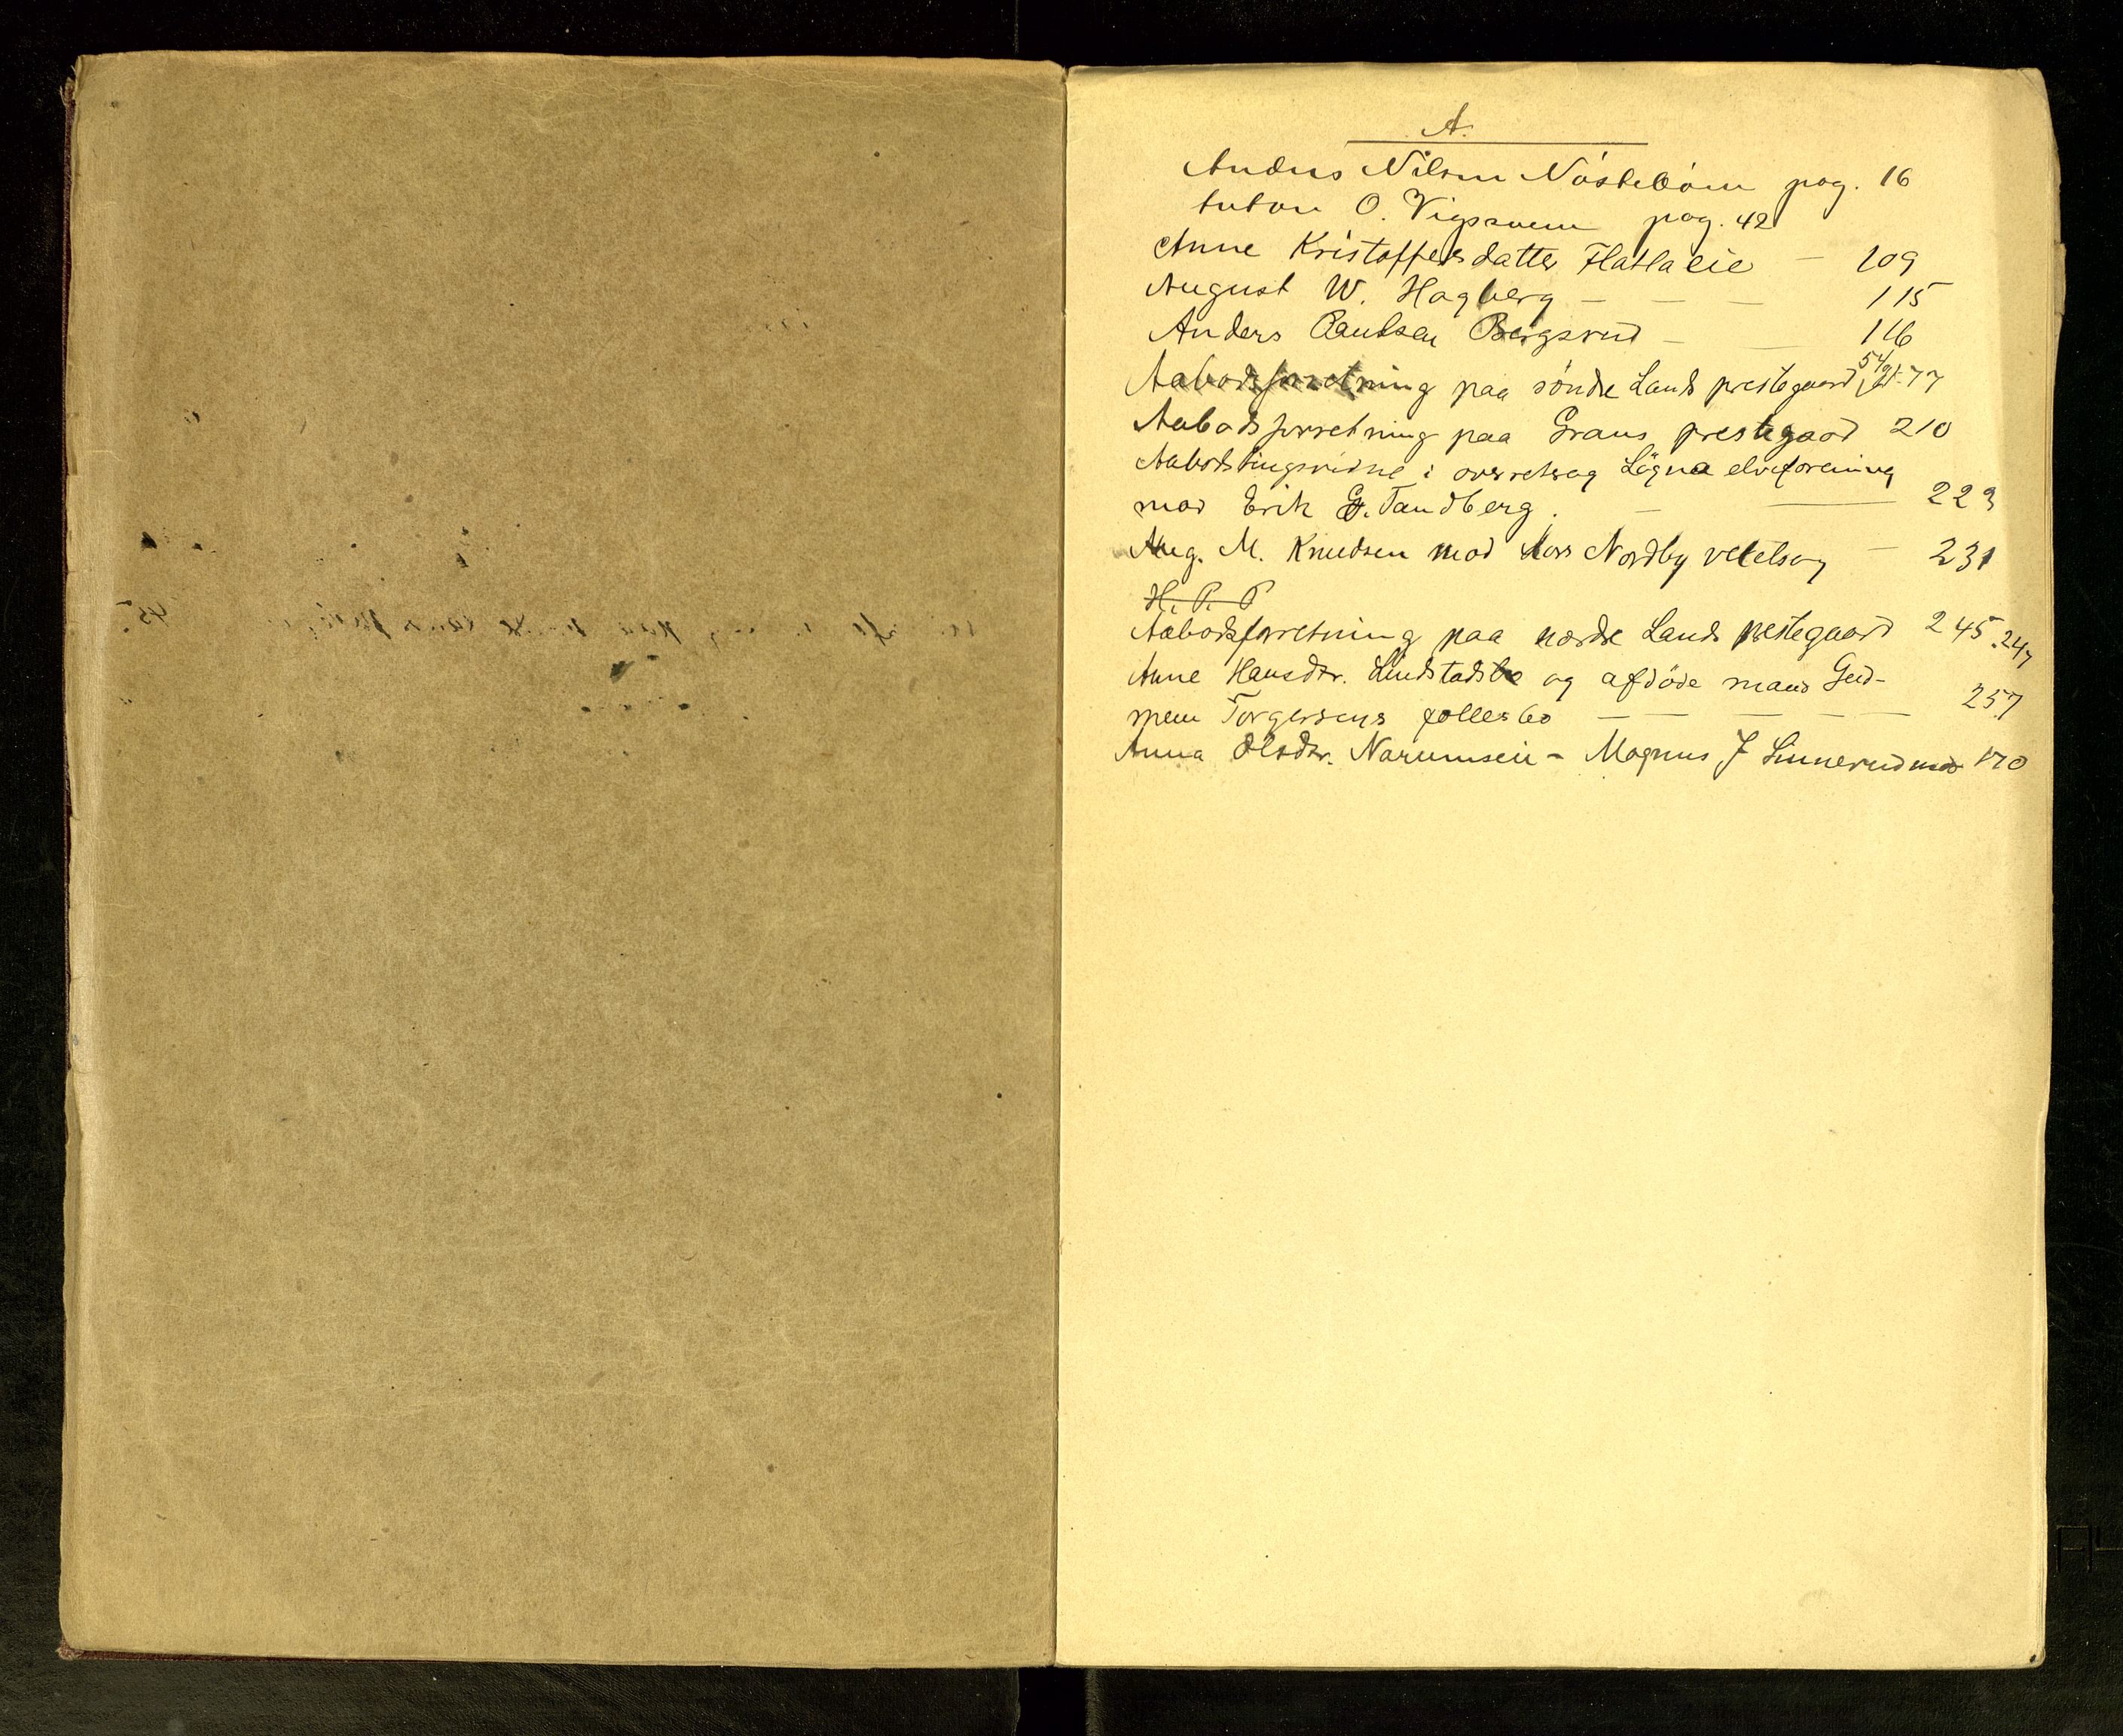 A.
Anders Nilsen Nöstebön pag. 16
Anton O. Vigsveen pag. 42
Anne Kristoffersdatter Flatlaeie — 109
August W. Hagberg — — — 115
Anders Paulsen Bergsrud — — 116
Aabodsforretning paa söndre Lands prestegaard 77
Aabodsforretning paa Grans prestegaard 210
Aabodstingsvidne i overretssag Lögna elveforening
mod Erik G. Tandberg. — — 223
Aug. M. Knudsen mod Lars Nordby vekselsag — 231
H. P. P
Aabodsforretning paa nordre Lands prestegaard 245. 247
Anne Hansdtr. Lindstads og afdöde mand Gud-
mun Torgersens fællesbo — — — — — 257
Anna Olsdtr. Narumseie - Magnus J Linnerud 170